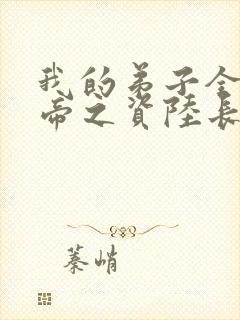 我的弟子全
帝之資陸長
蓁峭